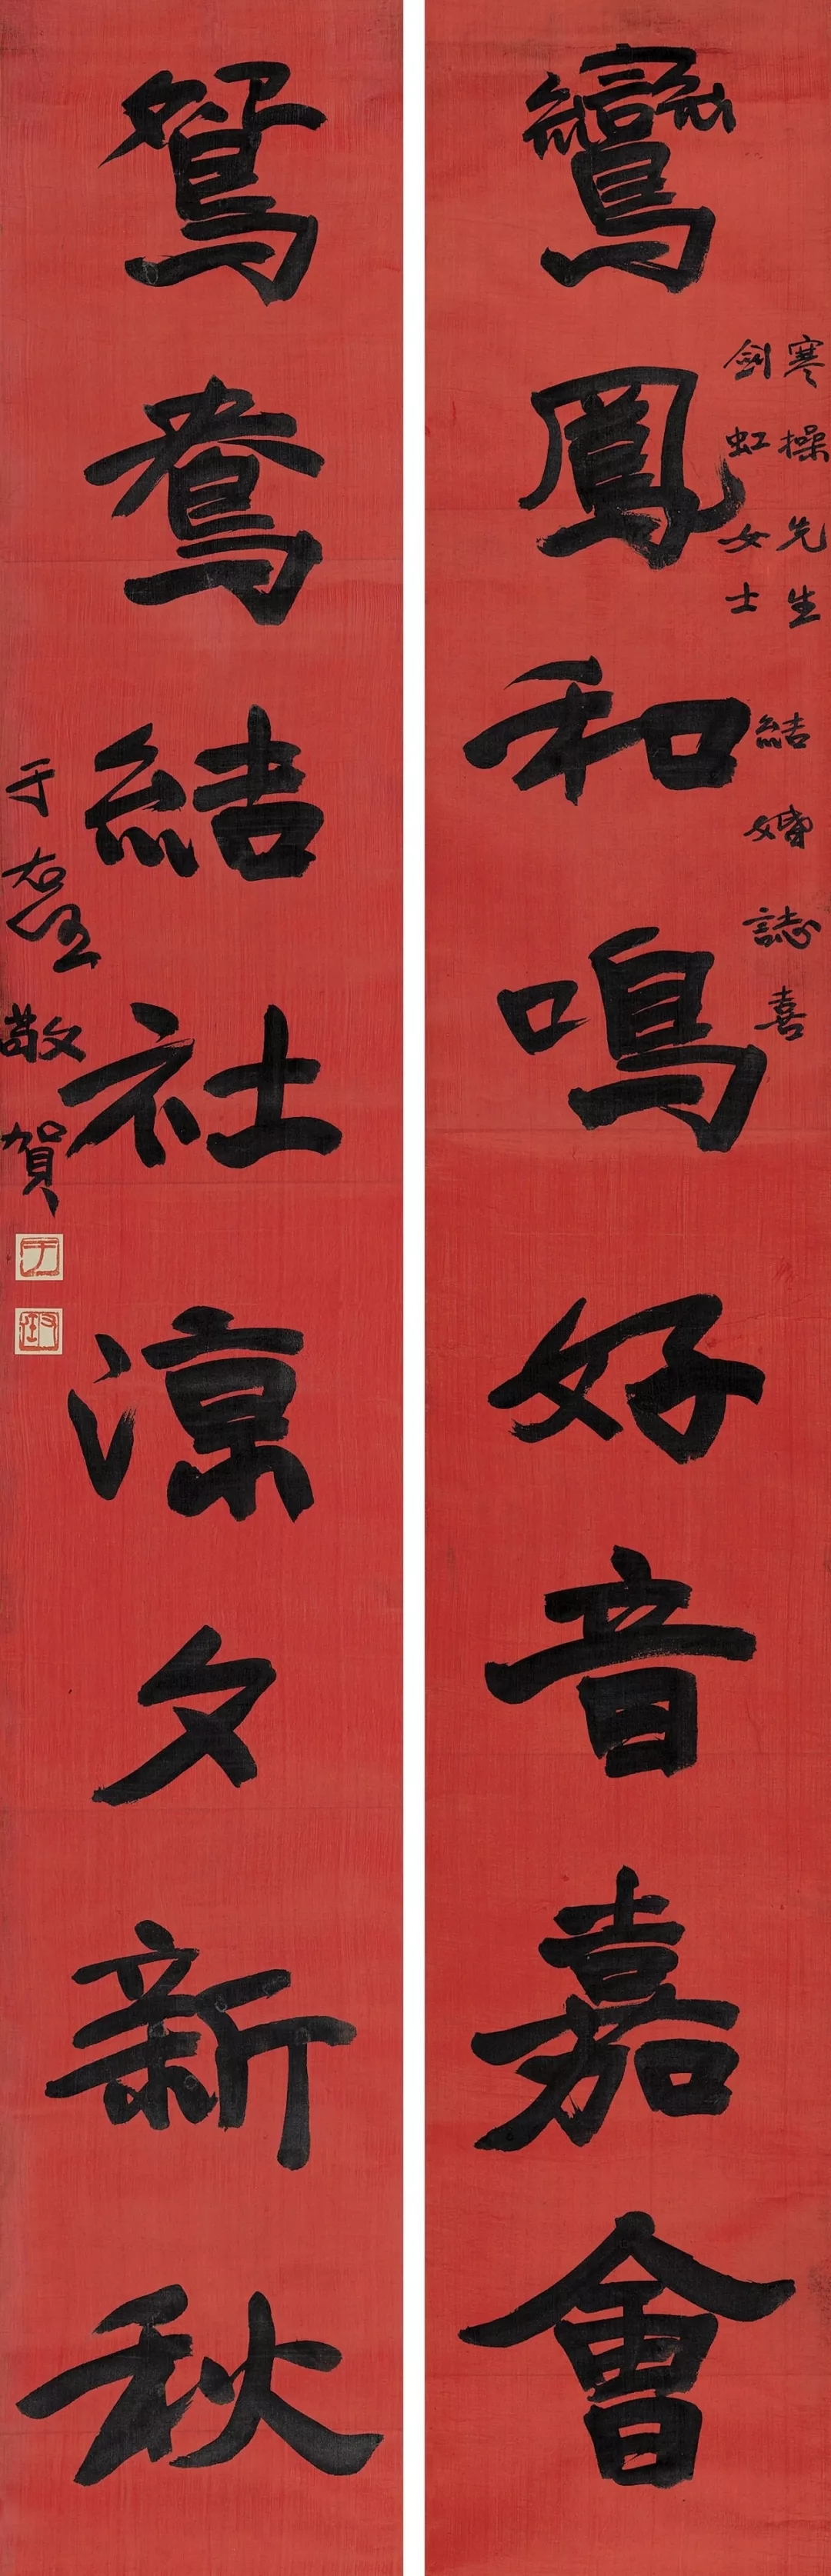 寒操先生
劍虹女士
結婚誌喜
鸞鳳和鳴好音嘉會
鴛鴦結社涼夕新秋
于右任敬賀